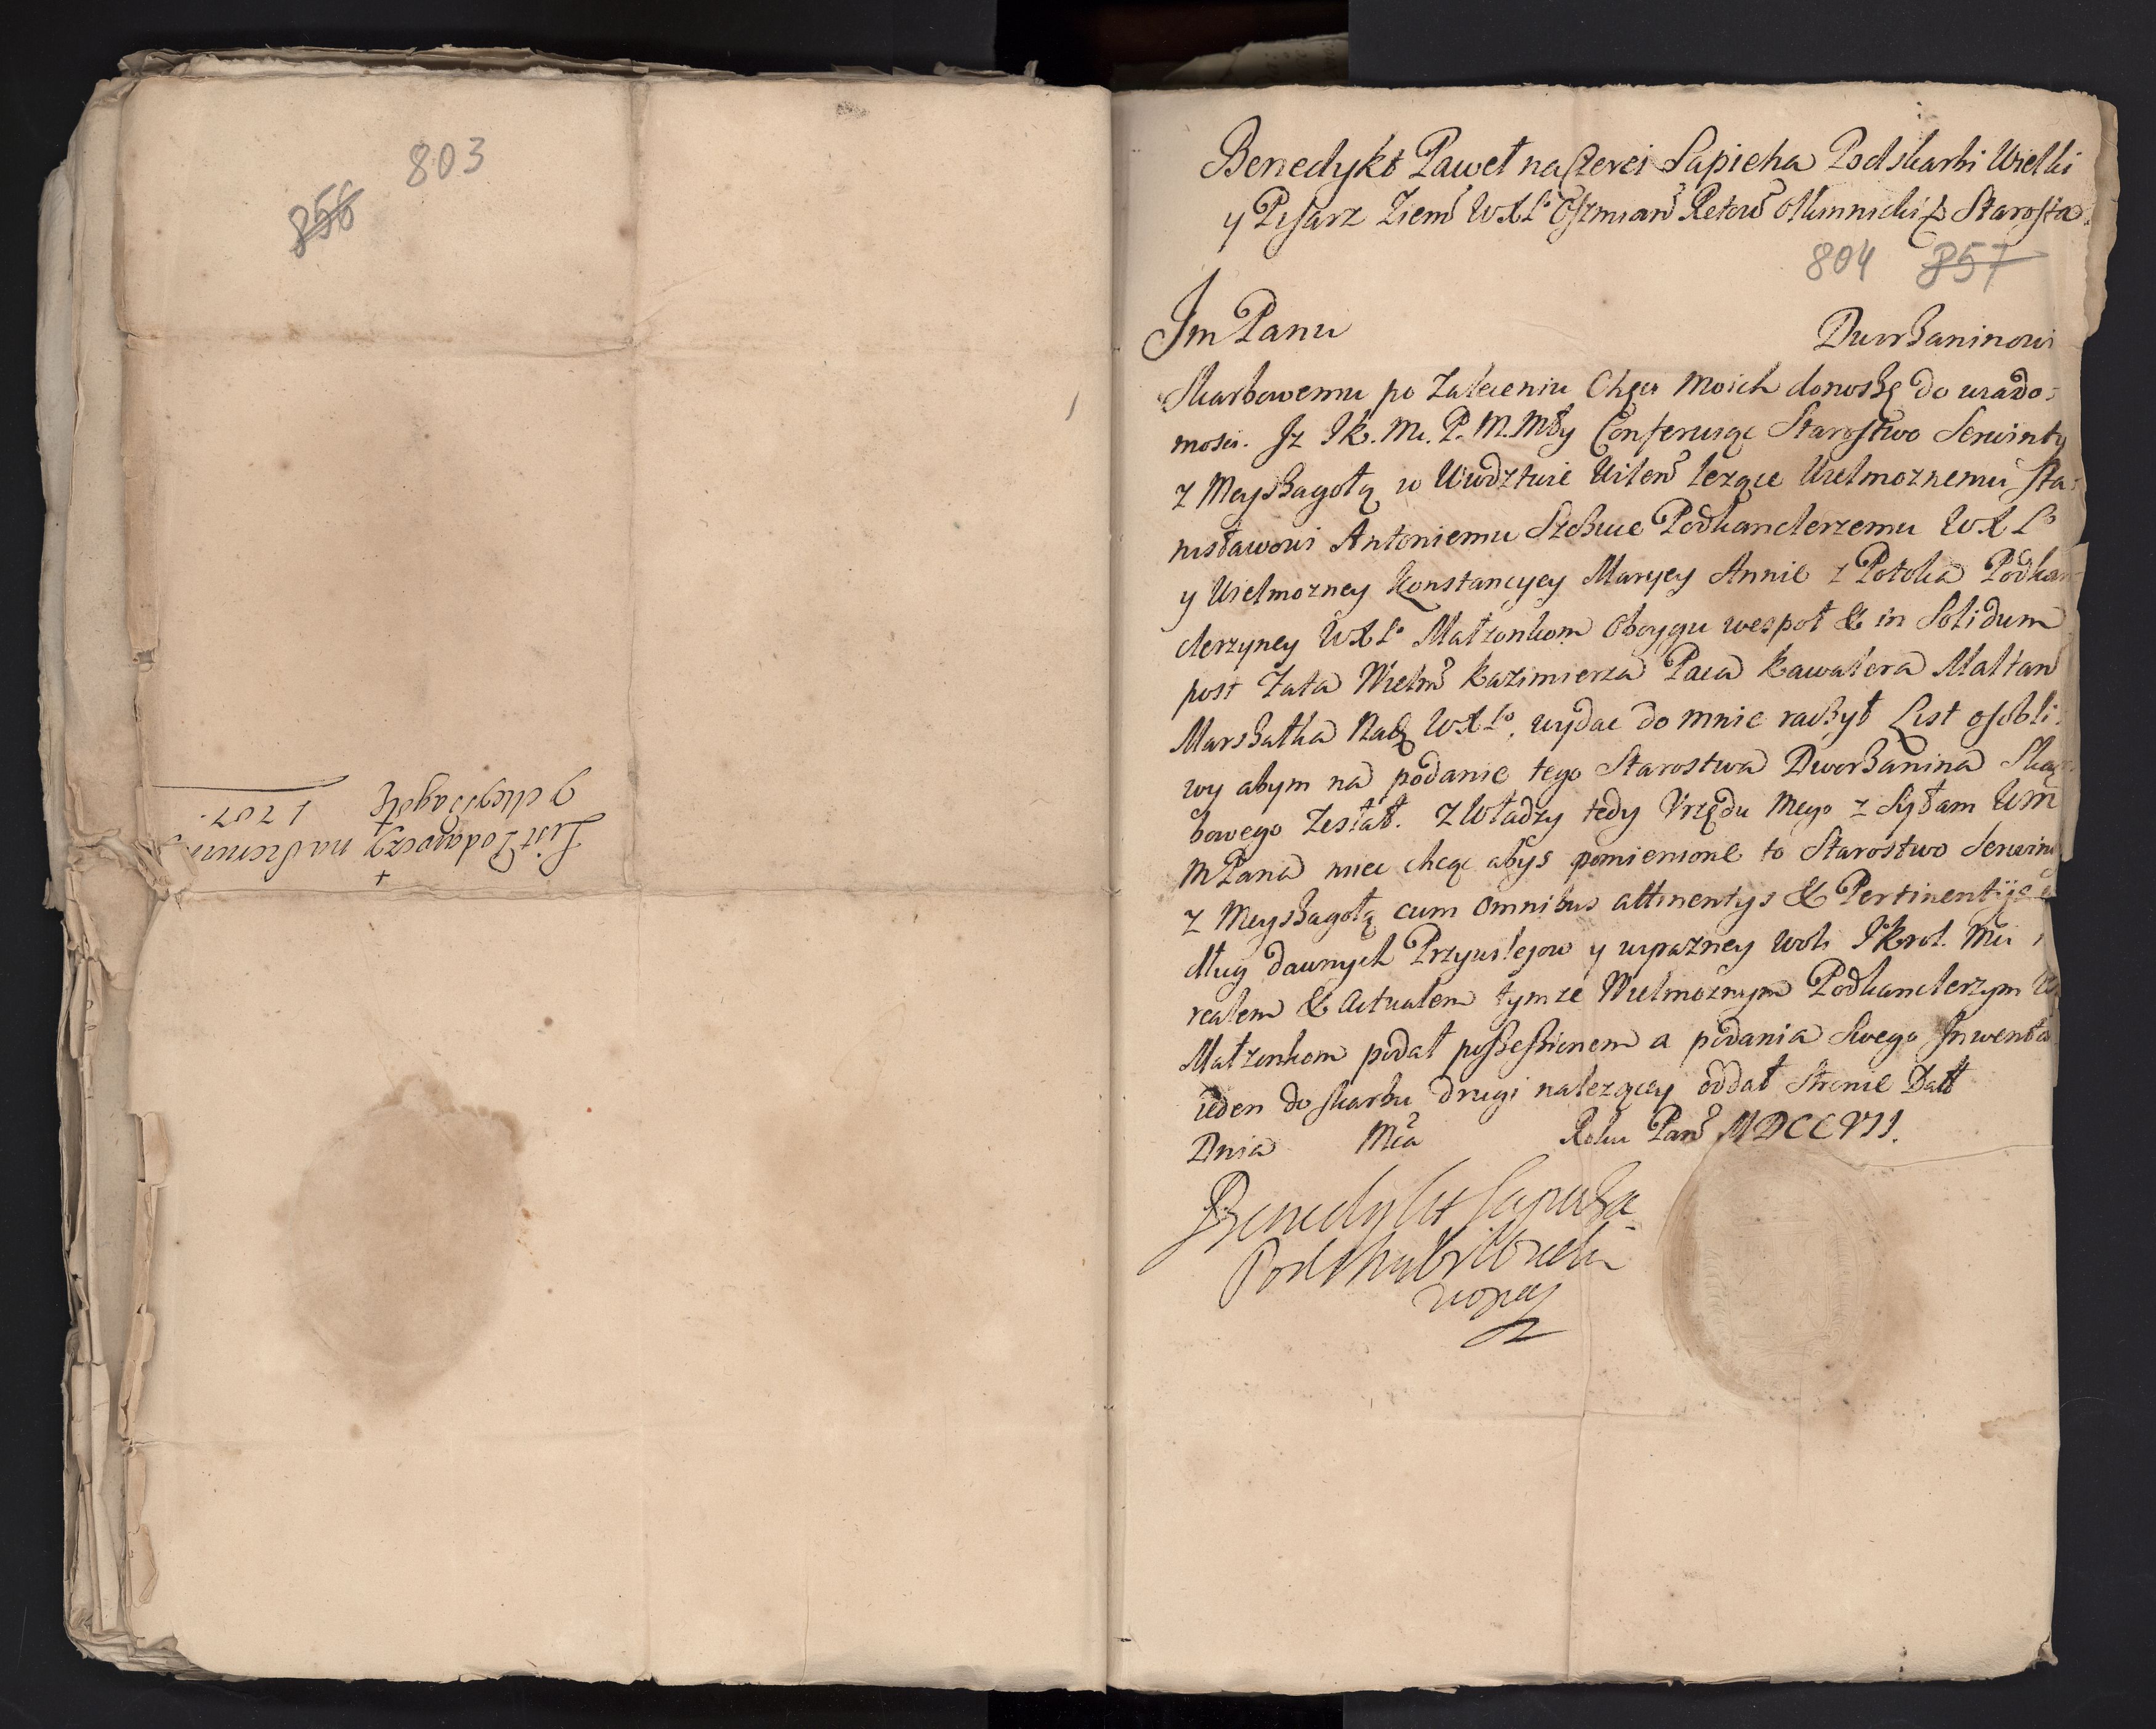 803
856
List Podawczy na Sierwint
y Meyszagołę
1707.
Benedykt Paweł na Czerei Sapieha Podskarbi Wielki
y Pisarz Ziem WXL° Oszmian Retow Olkinnicki Starosta
804 857
Jm Panu Dworzaninowi
Skarbowemu po Zaleceniu Chęci moich donoszę do wiado:
mości. Iż Jk. Mc. P. M. Mśy Conferuiąc Starostwo Serwinty
z Meyszagołą w Wwdztwie Wilen leżące Wielmożnemu Sta:
nisławowi Antoniemu Szczuce Podkanclerzemu WXL°
y Wielmożney Konstancyey Maryey Annie z Potoka Podkan
clerzyney WXL° Małżonkom Oboygu wespoł & in Solidum
post fata Wielm Kazimierza Paca Kawalera Maltan
Marszałka Nadz WXL°, wydać do mnie raczył List osobli:
wy abym na podanie tego Starostwa Dworzanina Skar
bowego Zesłał. Z Władzy tedy Urzędu mego z Syłam Wm
M Pana miec chcąc abyś pomienione to Starostwo Serwint
z Meyszagołą cum omnibus attinentijs & Pertinentijs
dług dawnych Przywilejow y wyraźney woli Jkrol. Mci
realem & actualem tymże Wielmożnym Podkanclerzym
Małżonkom podał possessionem a podania Swego Inwenta
ieden do skarbu drugi należącey oddał Stronie Datt
Dnia Mca Roku Pan MDCCVII.
Benedykt Sapieha
Podskarbi Wielki